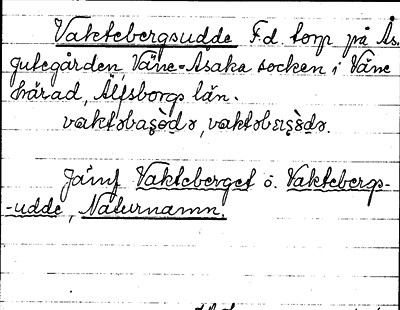 Vaktebergsudde F.d. torp på Ås.
gutegården Väne-Åsaka socken i Väne
härad, Älfsborgs län.
vaktəbaʂə̀də, vaktəbɛɪʂə̀də.
Jämf Vakteberget o. Vaktebergs-
-udde, Naturnamn.